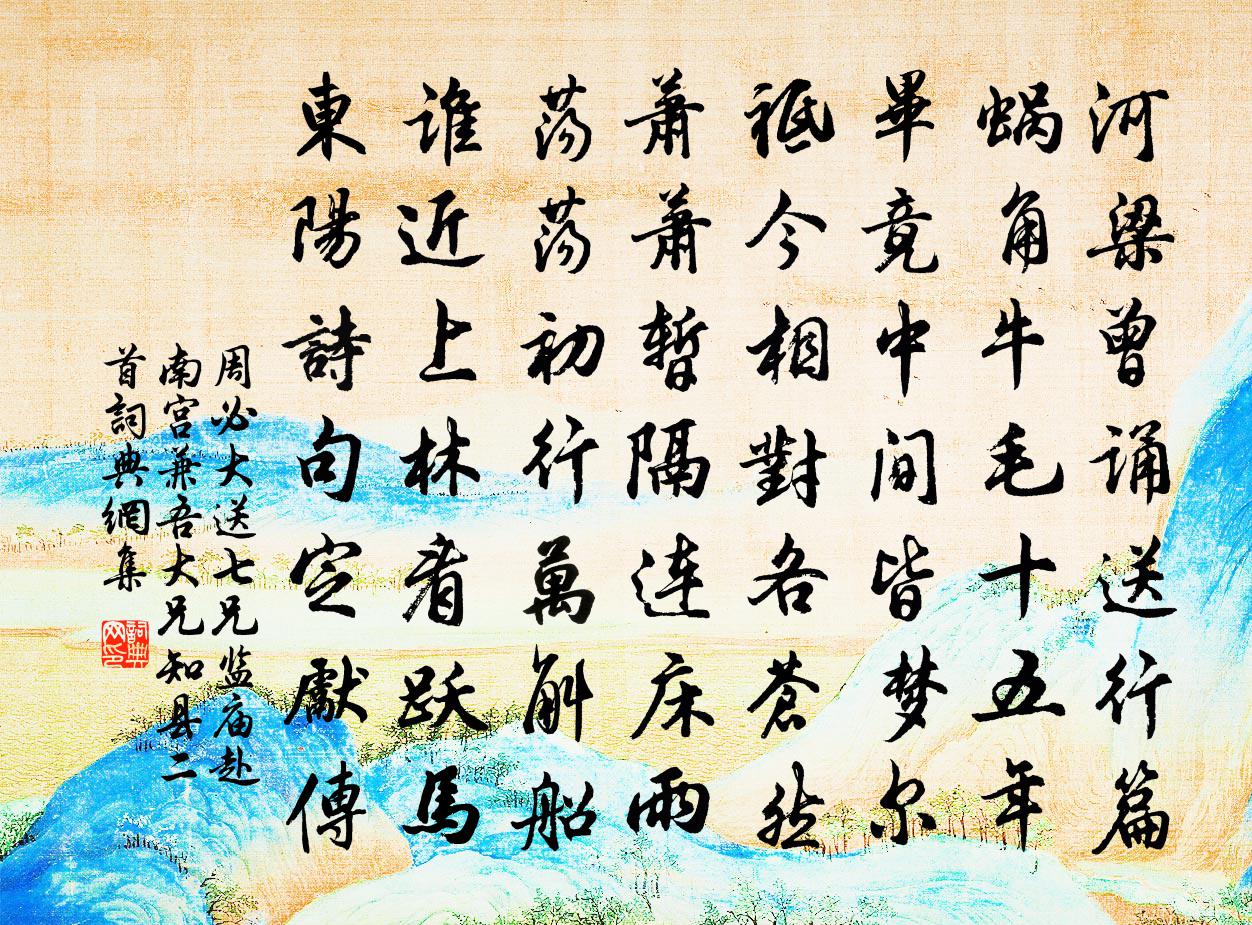 河梁曾诵送行篇
蜗角牛毛十五年
畢竟中间皆梦尔
祗今相對各蒼然
萧萧暫隔连床雨
荡荡初行萬斛船
谁近上林看跃馬
東陽詩句定獻傳
周必大送七兄监庙赴
南宫兼吾大兄知县二
首詞典網集
詞典
网印